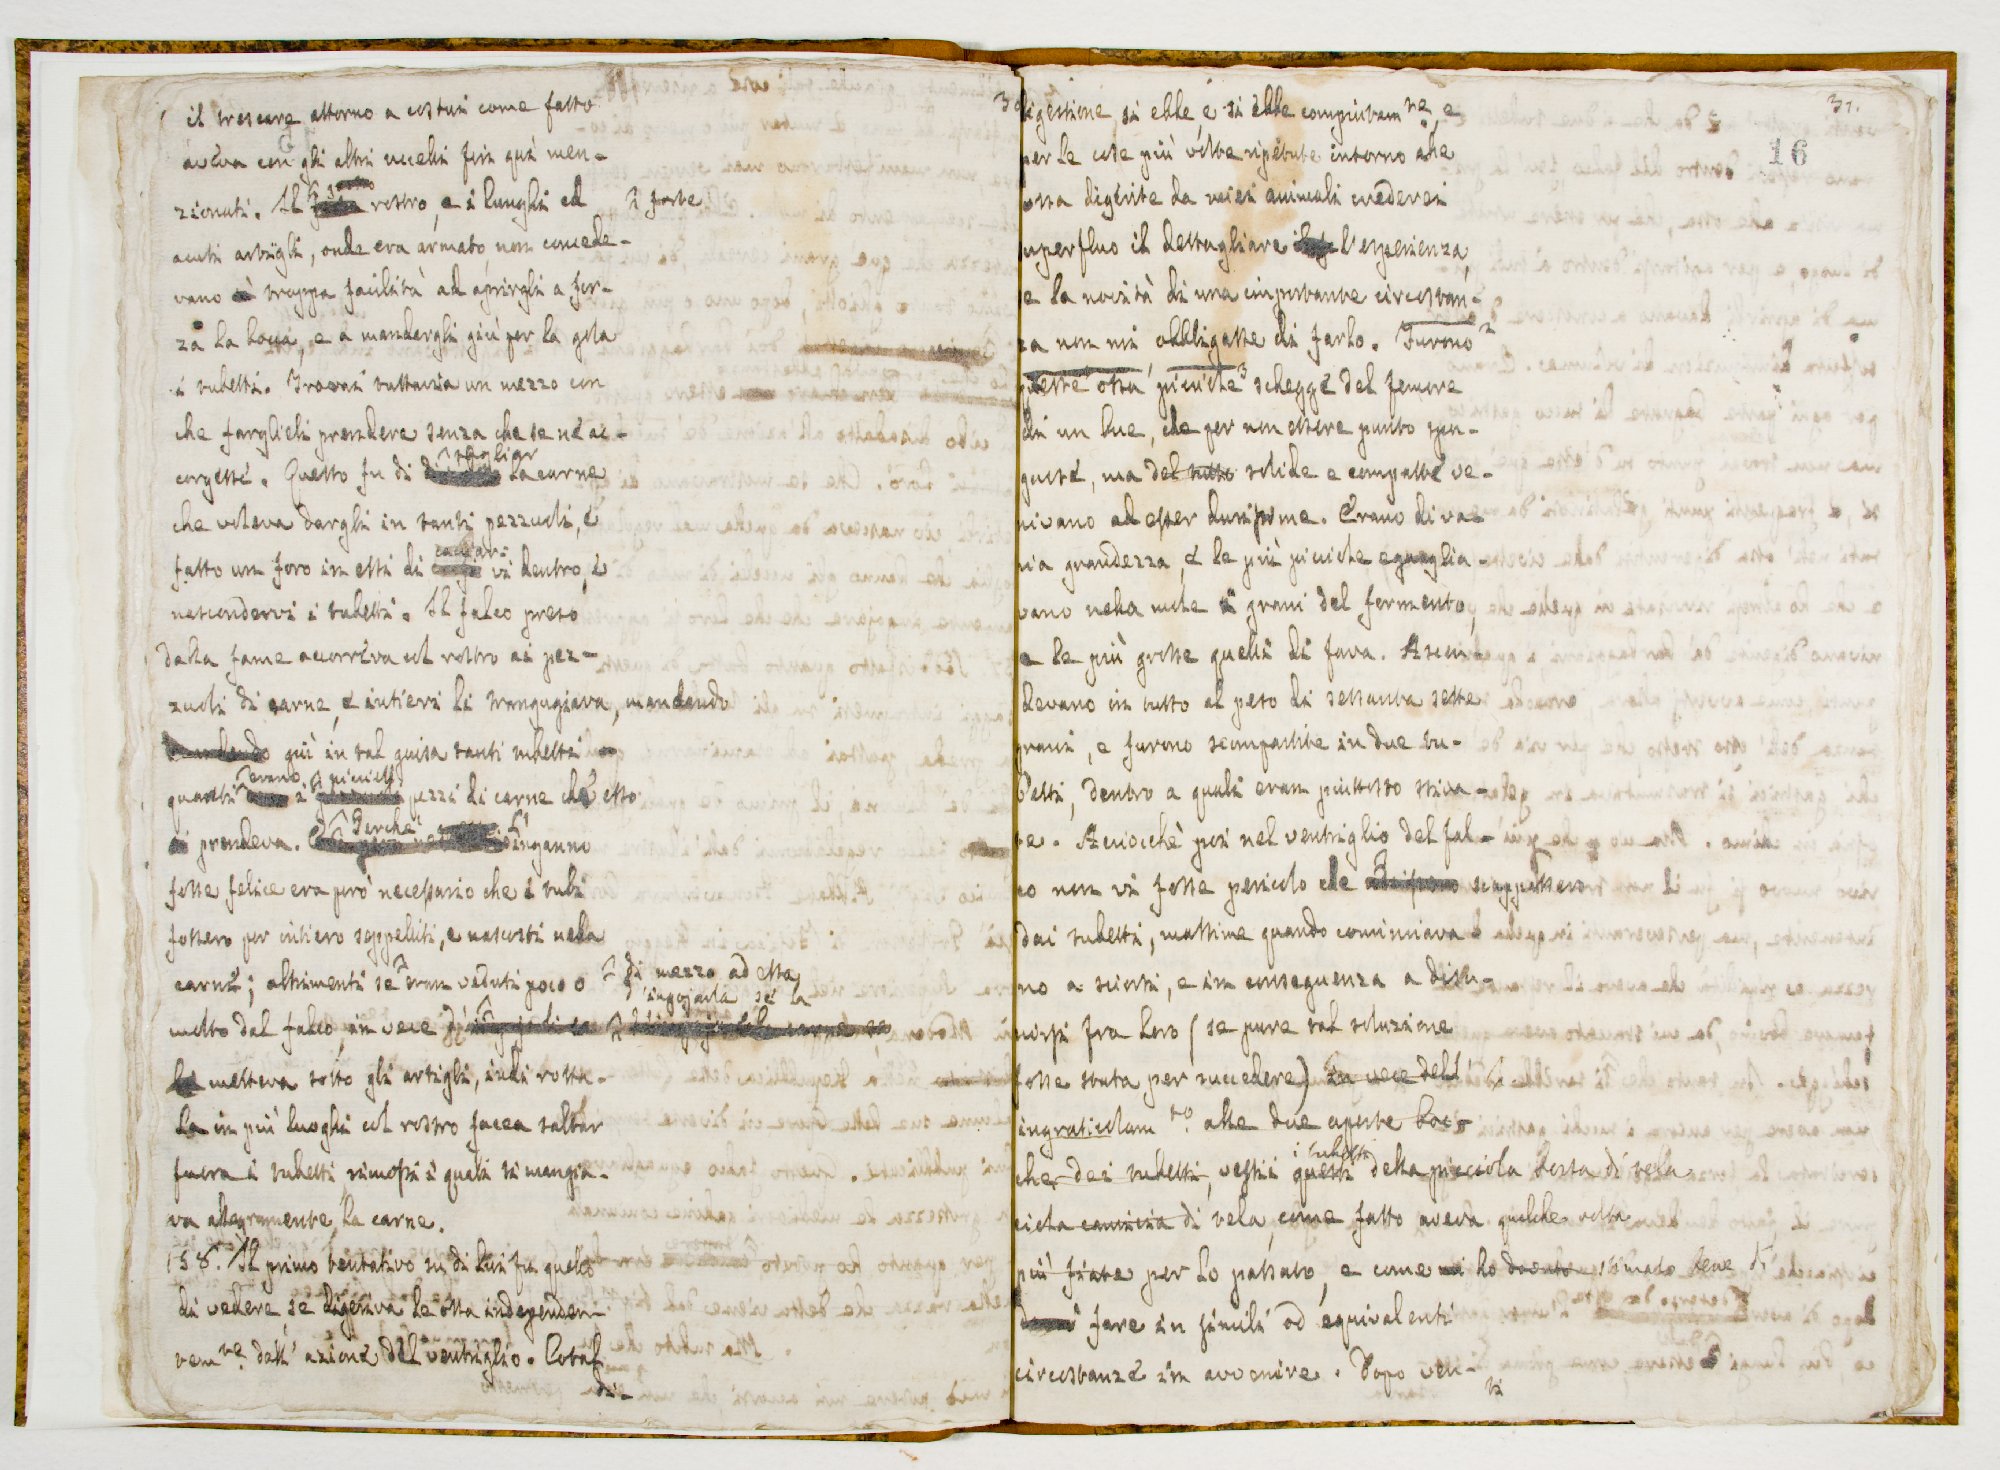 30
il trescare attorno a costui come fatto
aveva con gli altri uccelli fin quì men-
zionati. Il forte rostro, e i lunghi ed
acuti artigli, onde era armato, non concede-
vano troppa facilità ad aprirgli a for-
za la bocca, e a mandargli giù per la gola
i tubetti. Trovai tuttavia un mezzo con
che farglieli prendere senza che se ne ac-
corgesse. Questo fu di tagliar la carne
che voleva dargli in tanti pezzuoli, e
fatto un foro in essi di cacciarvi dentro, e
nascondervi i tubetti. Il falco preso
dalla fame accorreva col rostro ai pez-
zuoli di carne, e intieri li trangugiava, mandando
giù in tal guisa tanti tubetti
quanti erano i piccioli pezzi di carne che esso
prendeva. Perchè l'inganno
fosse felice era però necessario che i tubi
fossero per intiero seppelliti, e nascosti nella
carne; altrimenti se eran veduti poco o
molto dal falco, in vece di ingojarla sel la
metteva sotto gli artigli, indi rotta-
la in più luoghi col rostro facea saltar
fuora di mezzo ad essa i tubetti, rimossi i quali si mangia-
va allegramente la carne.
158. Il primo tentativo su di lui fu quello
di vedere, se digeriva le ossa independen-
temte. dall' azione del ventriglio. Cotal
di-
31.
16
digestione si ebbe, e si ebbe compiutamte., e
per le cose più volte ripetute intorno alle
ossa digerite da miei animali crederei
superfluo il dettagliare l'esperienza,
se la novità di una importante circostan-
za non mi obbligasse di farlo. Furono
queste ossa picciole schegge del femore
di un bue, che per non essere punto spu-
gnose, ma del tutto solide e compatte ve-
nivano ad esser durissime. Erano di va-
ria grandezza, e le più picciole eguaglia-
vano nella mole i grani del formento,
e le più grosse quelli di fava. Ascen-
devano in tutto al peso di settanta sette
grani, e furono scompartite in due tu-
betti, dentro a quali eran piuttosto stiva-
te. Acciocchè poi nel ventriglio del fal-
co non vi fosse pericolo che scappassero
dai tubetti, massime quando cominciava-
no a sciorsi, e in conseguenza a disu-
nirsi fra loro (se pure tal soluzione
fosse stata per succedere) in vece dell'
ingraticolamto. alle due aperte boc-
che dei tubetti, vestii i tubetti questi della picciola borsa di tela
cista camicia di tela, come fatto aveva qualche volta
più fiate per lo passato, e come ho stimato bene di
fare in simili od equivalenti
circostanze in avvenire. Dopo ven-
ti